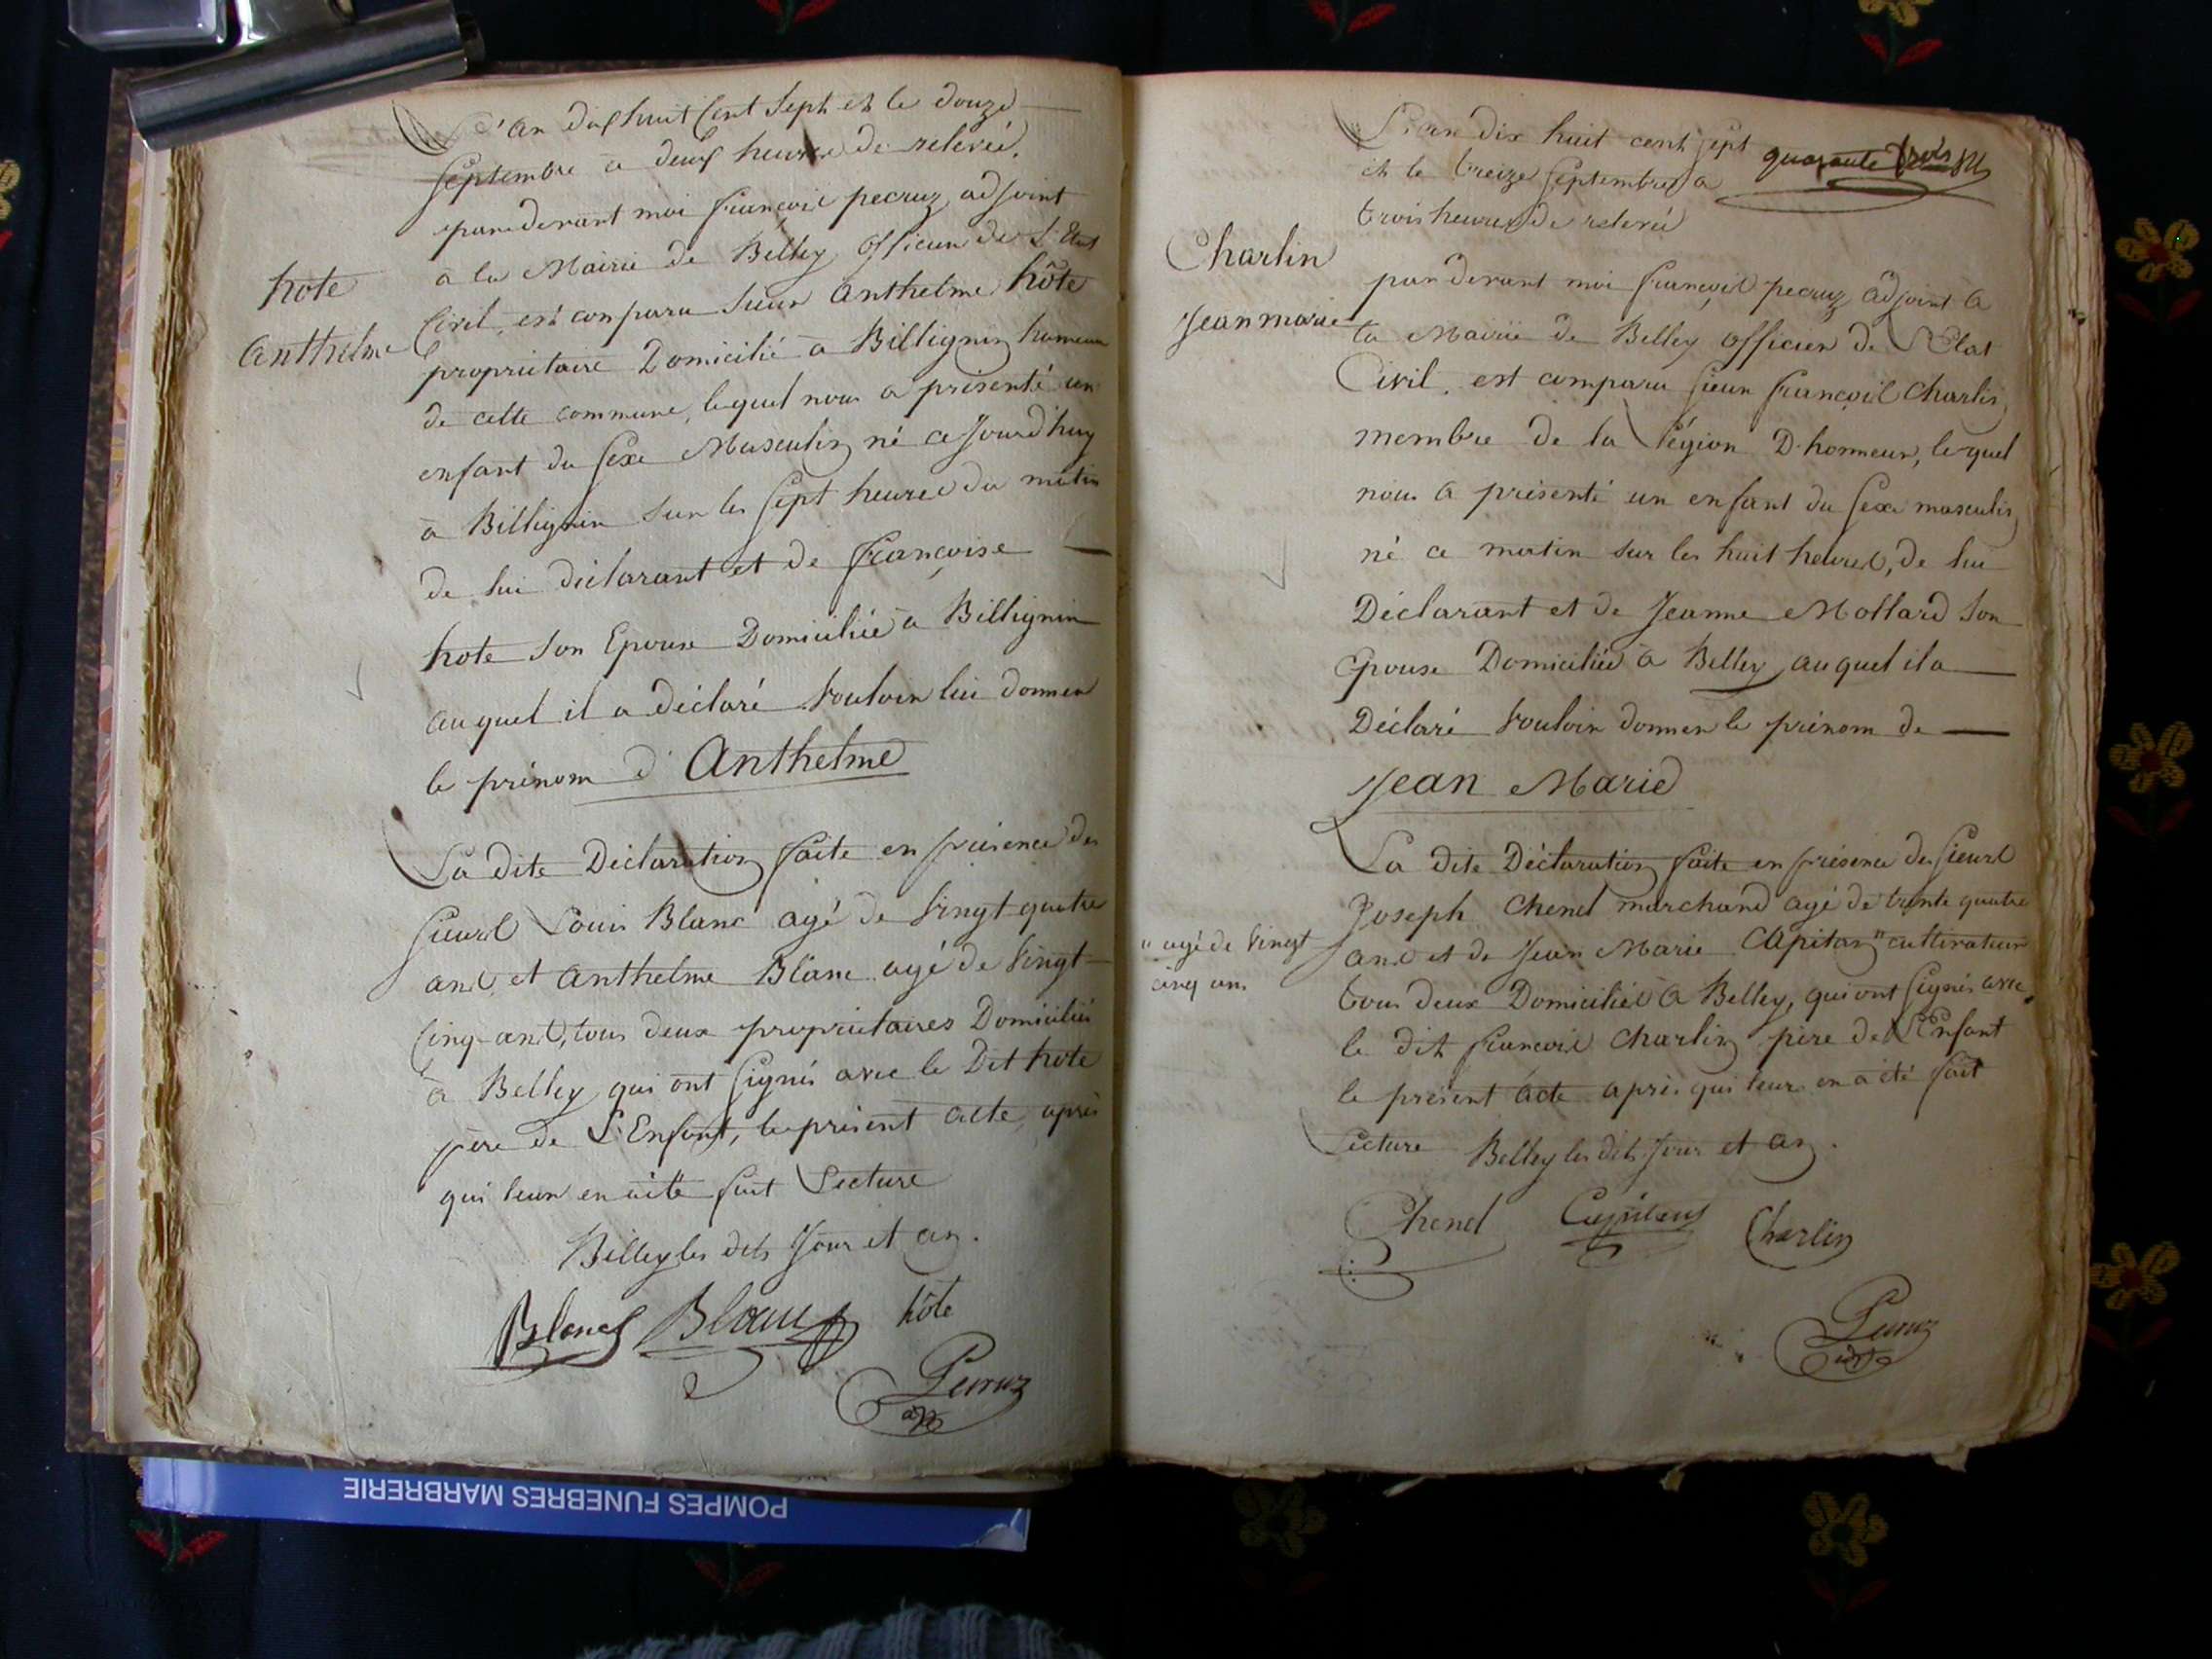 L'an dix huit Cent Sept et le douze
Septembre à deux heures de relevée,
pardevant moi françois pecruz adjoint
à la Mairie de Belley officier de L'Etat
hote
Civil, est comparu Sieur Anthelme hôte
Anthelme
propriétaire Domicilié à Billignin hameau
de cette commune, lequel nous a présenté un
enfant du sexe Masculin né cejourd'huy
à Billignin sur les sept heures du matin
de lui déclarant et de françoise
hote son Epouse Domiciliée à Billignin
auquel il a déclaré vouloir lui donner
le prénom d'Anthelme
La dite Déclaration faite en présence des
sieurs Louis Blanc agé de vingt quatre
ans, et Anthelme Blanc agé de vingt
cinq ans, tous deux propriétaires Domiciliés
à Belley qui ont signés avec le Dit hote
père de L'Enfant, le présent acte, après
qui leur en a été fait Lecture
Belley les dits Jour et an.
Blanc Blanc hôte
Pecruz
adjt
POMPES FUNEBRES MARBRERIE
quarante trois
L'an dix huit cent sept
et le treize septembre à
trois heures de relevée
Charlin
Jean marie
pardevant moi françois pecruz adjoint à
la Mairie de Belley officier de L'Etat
Civil, est comparu sieur françois Charlin
membre de la Légion D'honneur, lequel
nous a présenté un enfant du sexe masculin
né ce matin sur les huit heures, de lui
Déclarant et de Jeanne Mollard son
Epouse Domiciliée à Belley auquel il a
Déclaré vouloir donner le prénom de
Jean Marie
La dite Déclaration faite en présence des sieurs
Joseph Chenel marchand agé de trente quatre
ans et de Jean Marie Capitan " cultivateur
" agé de vingt
cinq ans
tous deux Domiciliés à Belley, qui ont signés avec
le dit françois Charlin père de L'Enfant
le présent acte après qui leur en a été fait
Lecture Belley les dits jour et an.
Chenel Capitan Charlin
Pecruz
adjt